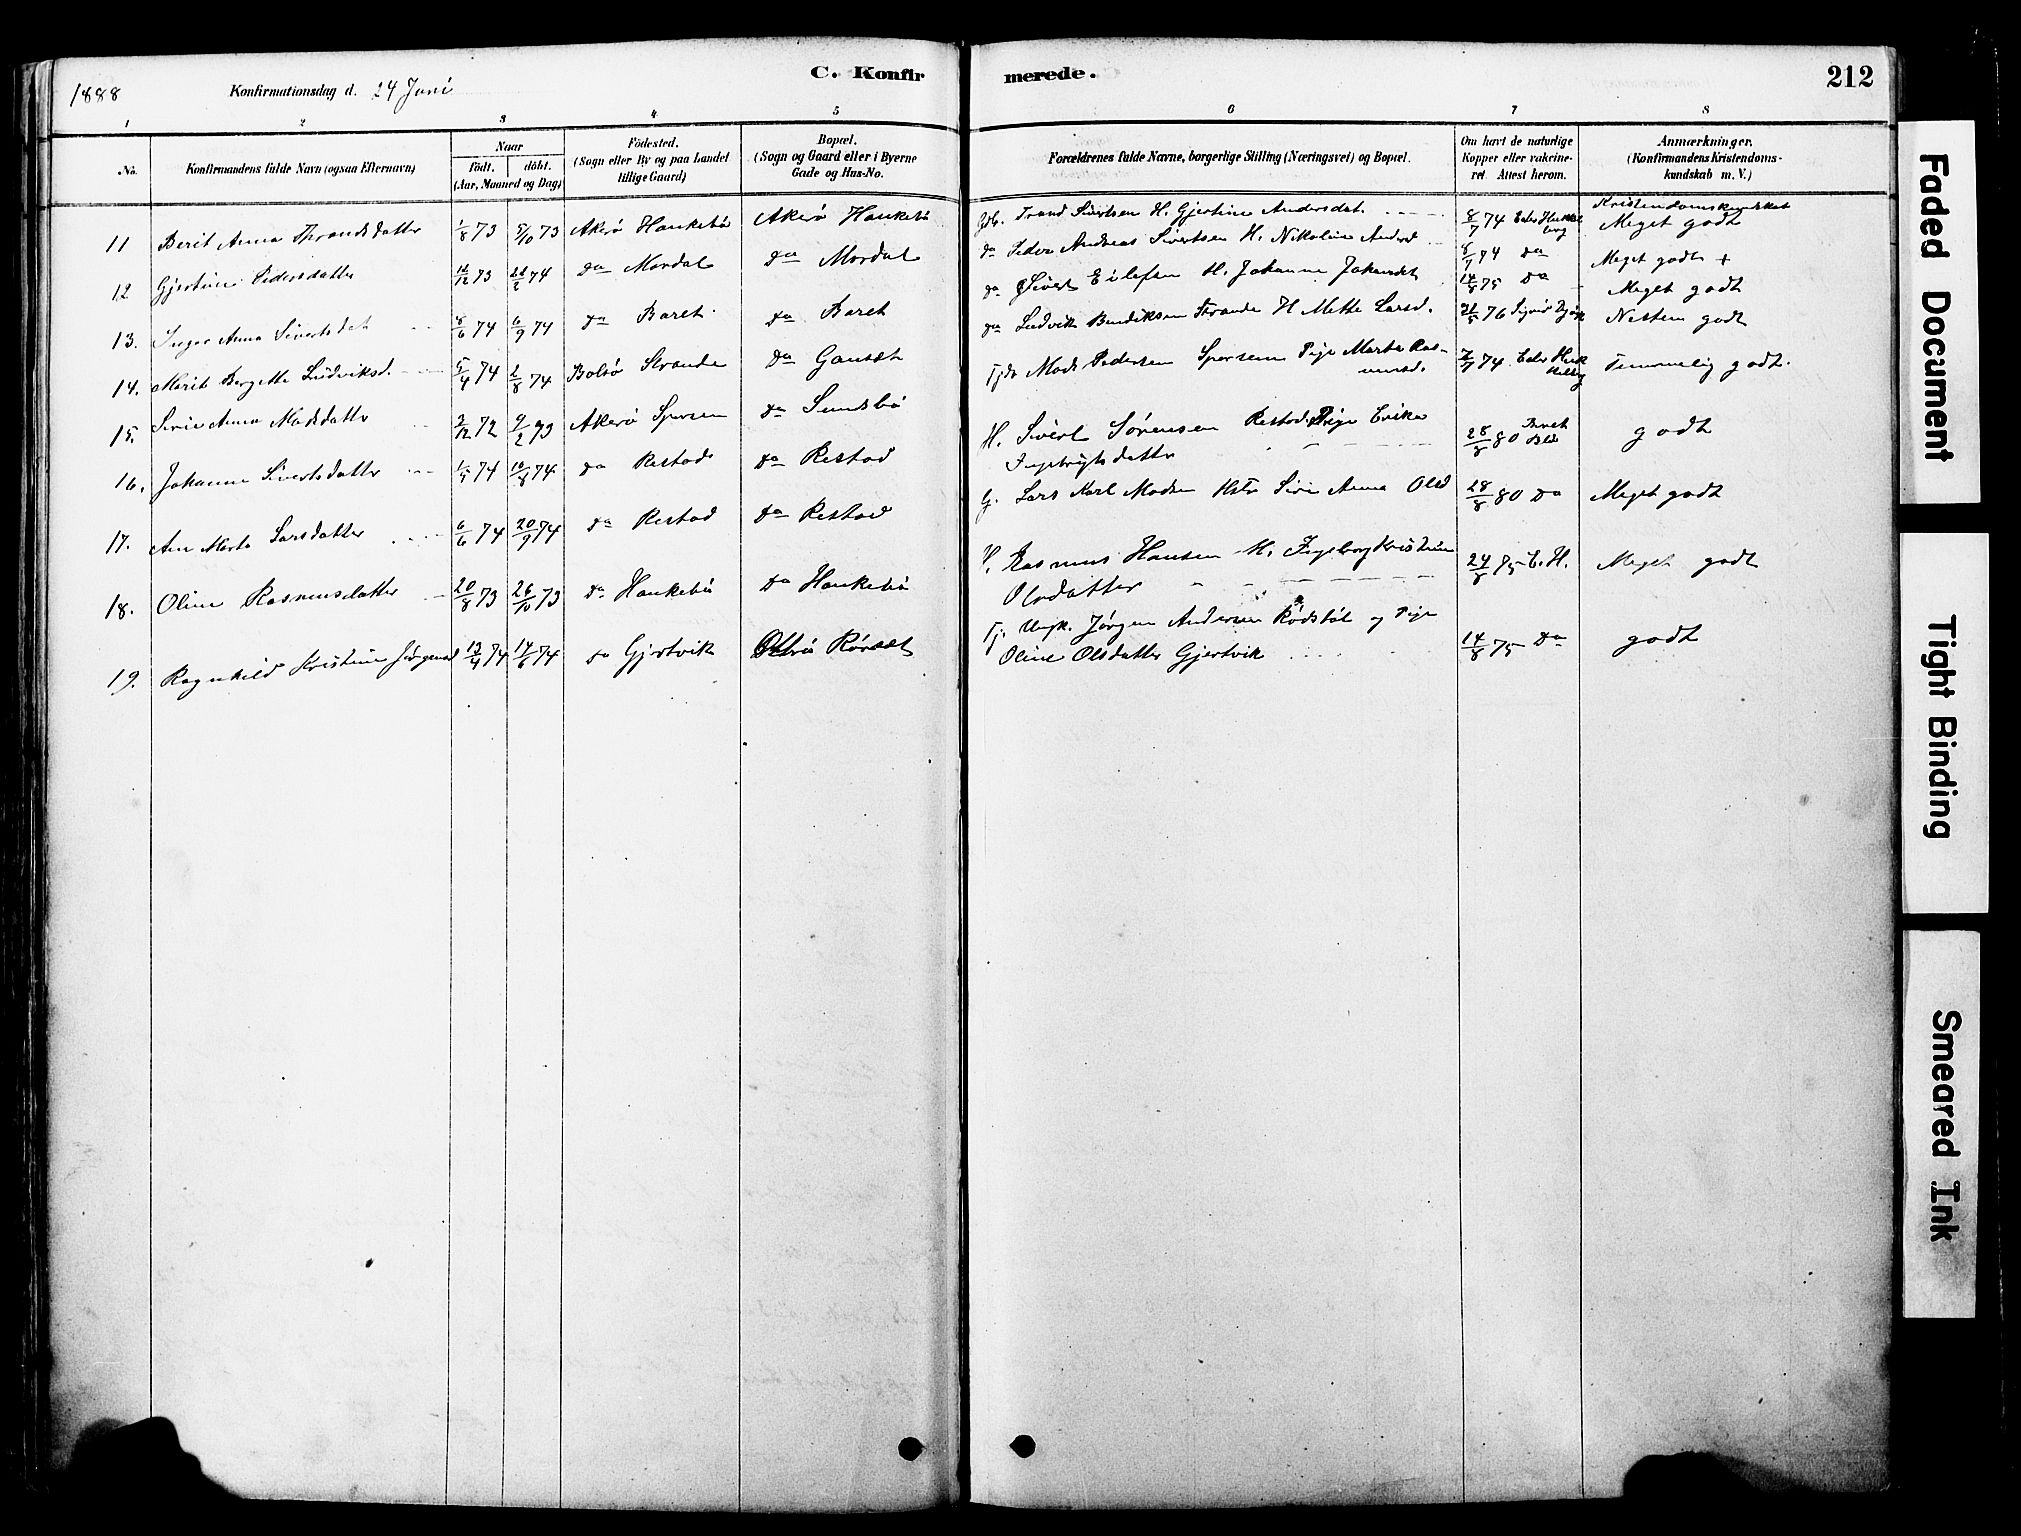 1888
Konfirmationsdag d. 24 Juni
C. Konfir
merede.
212
1 2 3 4 5 6 7 8
No.
Konfirmandens fulde Navn (ogsaa Efternavn)
Naar
født. døbt.
(Aar, Maaned og Dag)
Födested.
(Sogn eller By og paa Landet
tillige Gaard)
Bopæl.
(Sogn og Gaard eller i Byerne
Gade og Hus-No.
Forældrenes fulde Navne, borgerlige Stilling (Næringsvei) og Bopæl.
Om havt de naturlige
Kopper eller vakcine-
ret. Attest herom.
Anmærkninger.
(Konfirmandens Kristendoms-
kundskab m. V.)
Kristendomskundskab
11 Berit Anna Throndsdatter 1/8 73 5/10 73 Akerø Haukebø Akerø Haukebø Gdb. Trond Sivertsen H. Gjertine Andersdat. 8/7 74 Meget godt
12 Gjertine Pedersdatter 73 74 Do Mordal Do Mordal Do Peder Andreas Sivertsen H. Nikoline Andersd 8/7 74 Do Meget godt +
13. Inger Anna Sivertsdat 8/6 74 6/9 74 Do Baret Do Baret Do Sivert Eilefsen H. Johanne Johansdt 14/8 75 Do Meget godt
14. Marit Bergette Ludviksd. 5/4 74 2/8 74 Bolsø Strande Do Gausæt Do Ludvik Bendiksen Strande H Mette Larsd. 76 Nesten godt
15. Sirie Anna Madsdatter 72 9/2 73 Akerø Sporsem Do Sundsbø Tjdr Mads Pedersen Sporsem Pige Marte Ras-
musd. 74 Temmelig godt.
16. Johanne Sivertsdatter 74 74 Do Restad Do Restad H. Sivert Sørensen Restad Pige Erika
Ingebrigtsdatter 28/8 80 godt
17. Ane Marta Larsdatter 6/6 74 20/9 74 Do Restad Do Restad G. Lars Karl Madsen Hstr Siri Anna Olsd 28/8 80 Do Meget godt
18. Oline Rasmusdatter 20/8 73 26/10 73 Do Haukebø Do Haukebø H. Rasmus Hansen H. Ingeborg Kristine
Olsdatter 24/8 75 E. H. Meget godt
19. Ragnhild Kristine Jørgensd 13/4 74 14/6 74 Do Gjertvik Rørsæt Tj. Ungk. Jørgen Andersen Rødsbøl og Pige
Oline Olsdatter Gjertvik 14/8 75 Do godt
Faded Document
Tight Binding
Smeared Ink